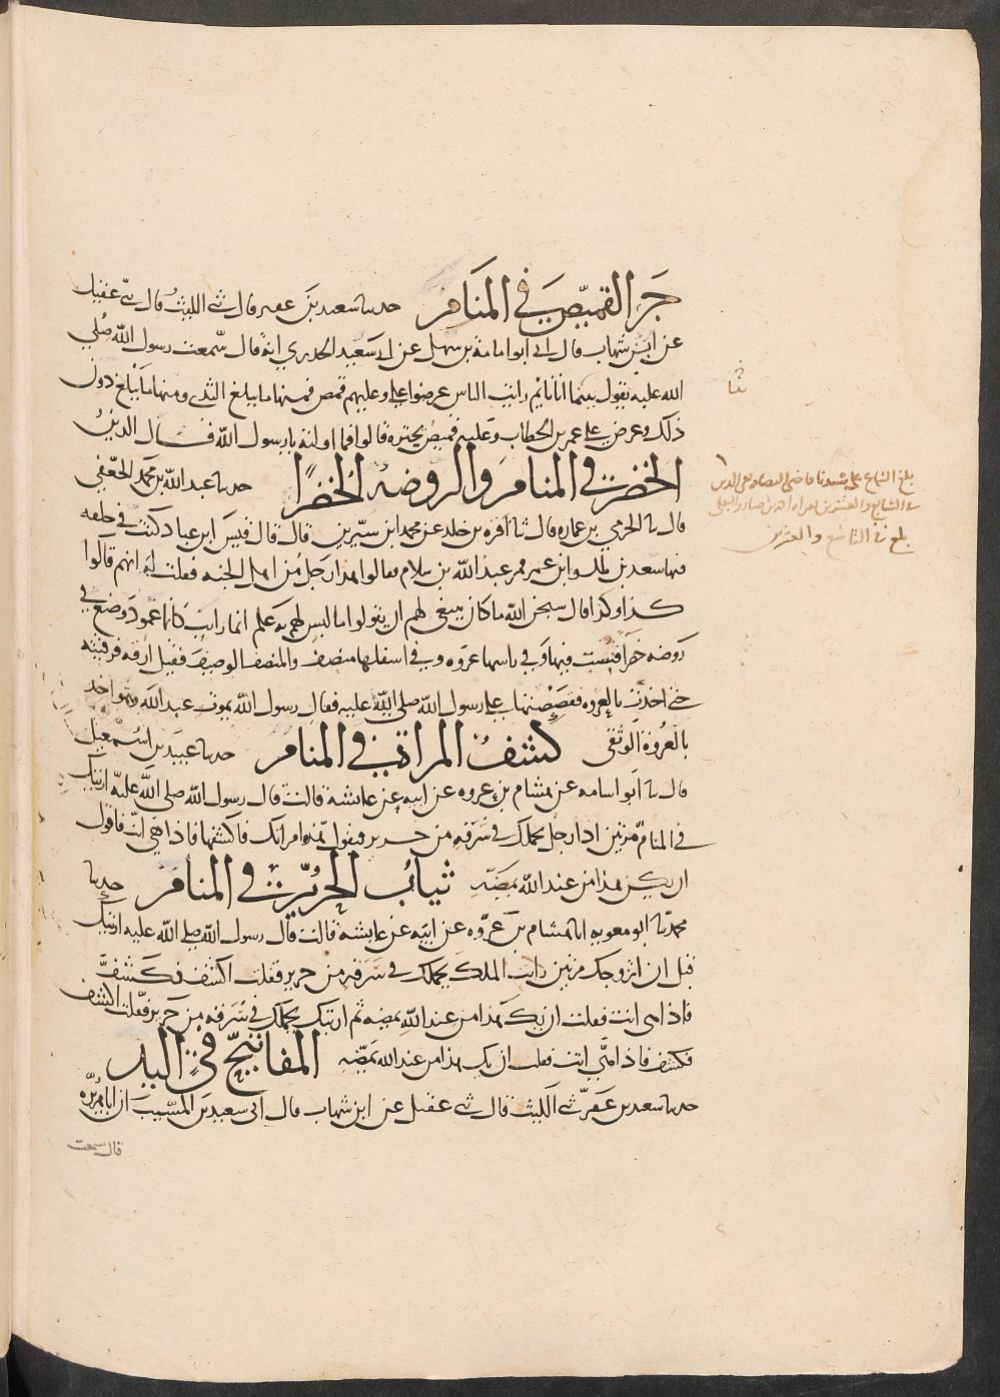 جر القميص في المنام حدثنا سعيد بن عفير قال ثني الليث قال ثني عقيل
عن ابن شهاب قال اني ابو امامة بن سهل عن ابي سعيد الخدري انه قال سمعت رسول الله صلى
الله عليه يقول بينما انا نائم رايت الناس عرضوا علي وعليهم قمص فمنها ما يبلغ الثدي ومنها ما يبلغ دون
ذلك وعرض علي عمر بن الخطاب وعليه قميص يجتره قالوا فما اولته يا رسول الله قال الدين
الخضر في المنام والروضة الخضرا حدثنا عبد الله بن محمد الجعفي
قال نا الحرمي بن عماره قال نا قره بن خلد عن محمد ابن سيرين قال قال قيس ابن عباد كنت في حلقه
فيها سعد بن ملك وابن عمر فمر عبد الله بن سلام فقالوا هذا رجل من اهل الجنه فقلت له انهم قالوا
كذا وكذا قال سبحن الله ما كان ينبغي لهم ان يقولوا ما ليس لهم به علم انما رايت كانما عمود وضع في
روضه خضرا فنصبت فيها وفي راسها عروه وفي اسفلها منصف والمنصف الوصيف فقيل ارقه فرقيته
حتى اخذت بالعروه فقصصتها على رسول الله صلى الله عليه فقال رسول الله يموت عبد الله وهو اخذ
بالعروة الوثقى كشف المراة في المنام حدثنا عبيد بن اسمعيل
قال نا ابو اسامه عن هشام بن عروه عن ابيه عن عايشة قالت قال رسول الله صلى الله عليه اريتك
في المنام مرتين اذا رجل يحملك في سرقه من حرير فيقول هذه امراتك فاكشفها فاذا هي انت فاقول
ان يكن هذا من عند الله يمضه ثياب الحرير في المنام حدثنا
محمد نا ابو معويه انا هشام بن عروه عن ابيه عن عايشة قالت قال رسول الله صلى الله عليه اريتك
قبل ان اتزوجك مرتين رايت الملك يحملك في سرقه من حرير فقلت اكشف فكشف
فاذا هي انت فقلت ان يك هذا من عند الله يمضه ثم اريتك يحملك في سرقه من حرير فقلت اكشف
فكشف فاذا هي انت فقلت ان يك هذا من عند الله يمضه المفاتيح في اليد
حدثنا سعيد بن عفير ثني الليث قال ثني عقيل عن ابن شهاب قال اني سعيد بن المسيب ان ابا هريره
قال سمعت
ثنا
بلغ السماع على سيدنا قاضي القضاه تقي الدين
في السابع والعشرين
بلغ في التاسع والعشرين